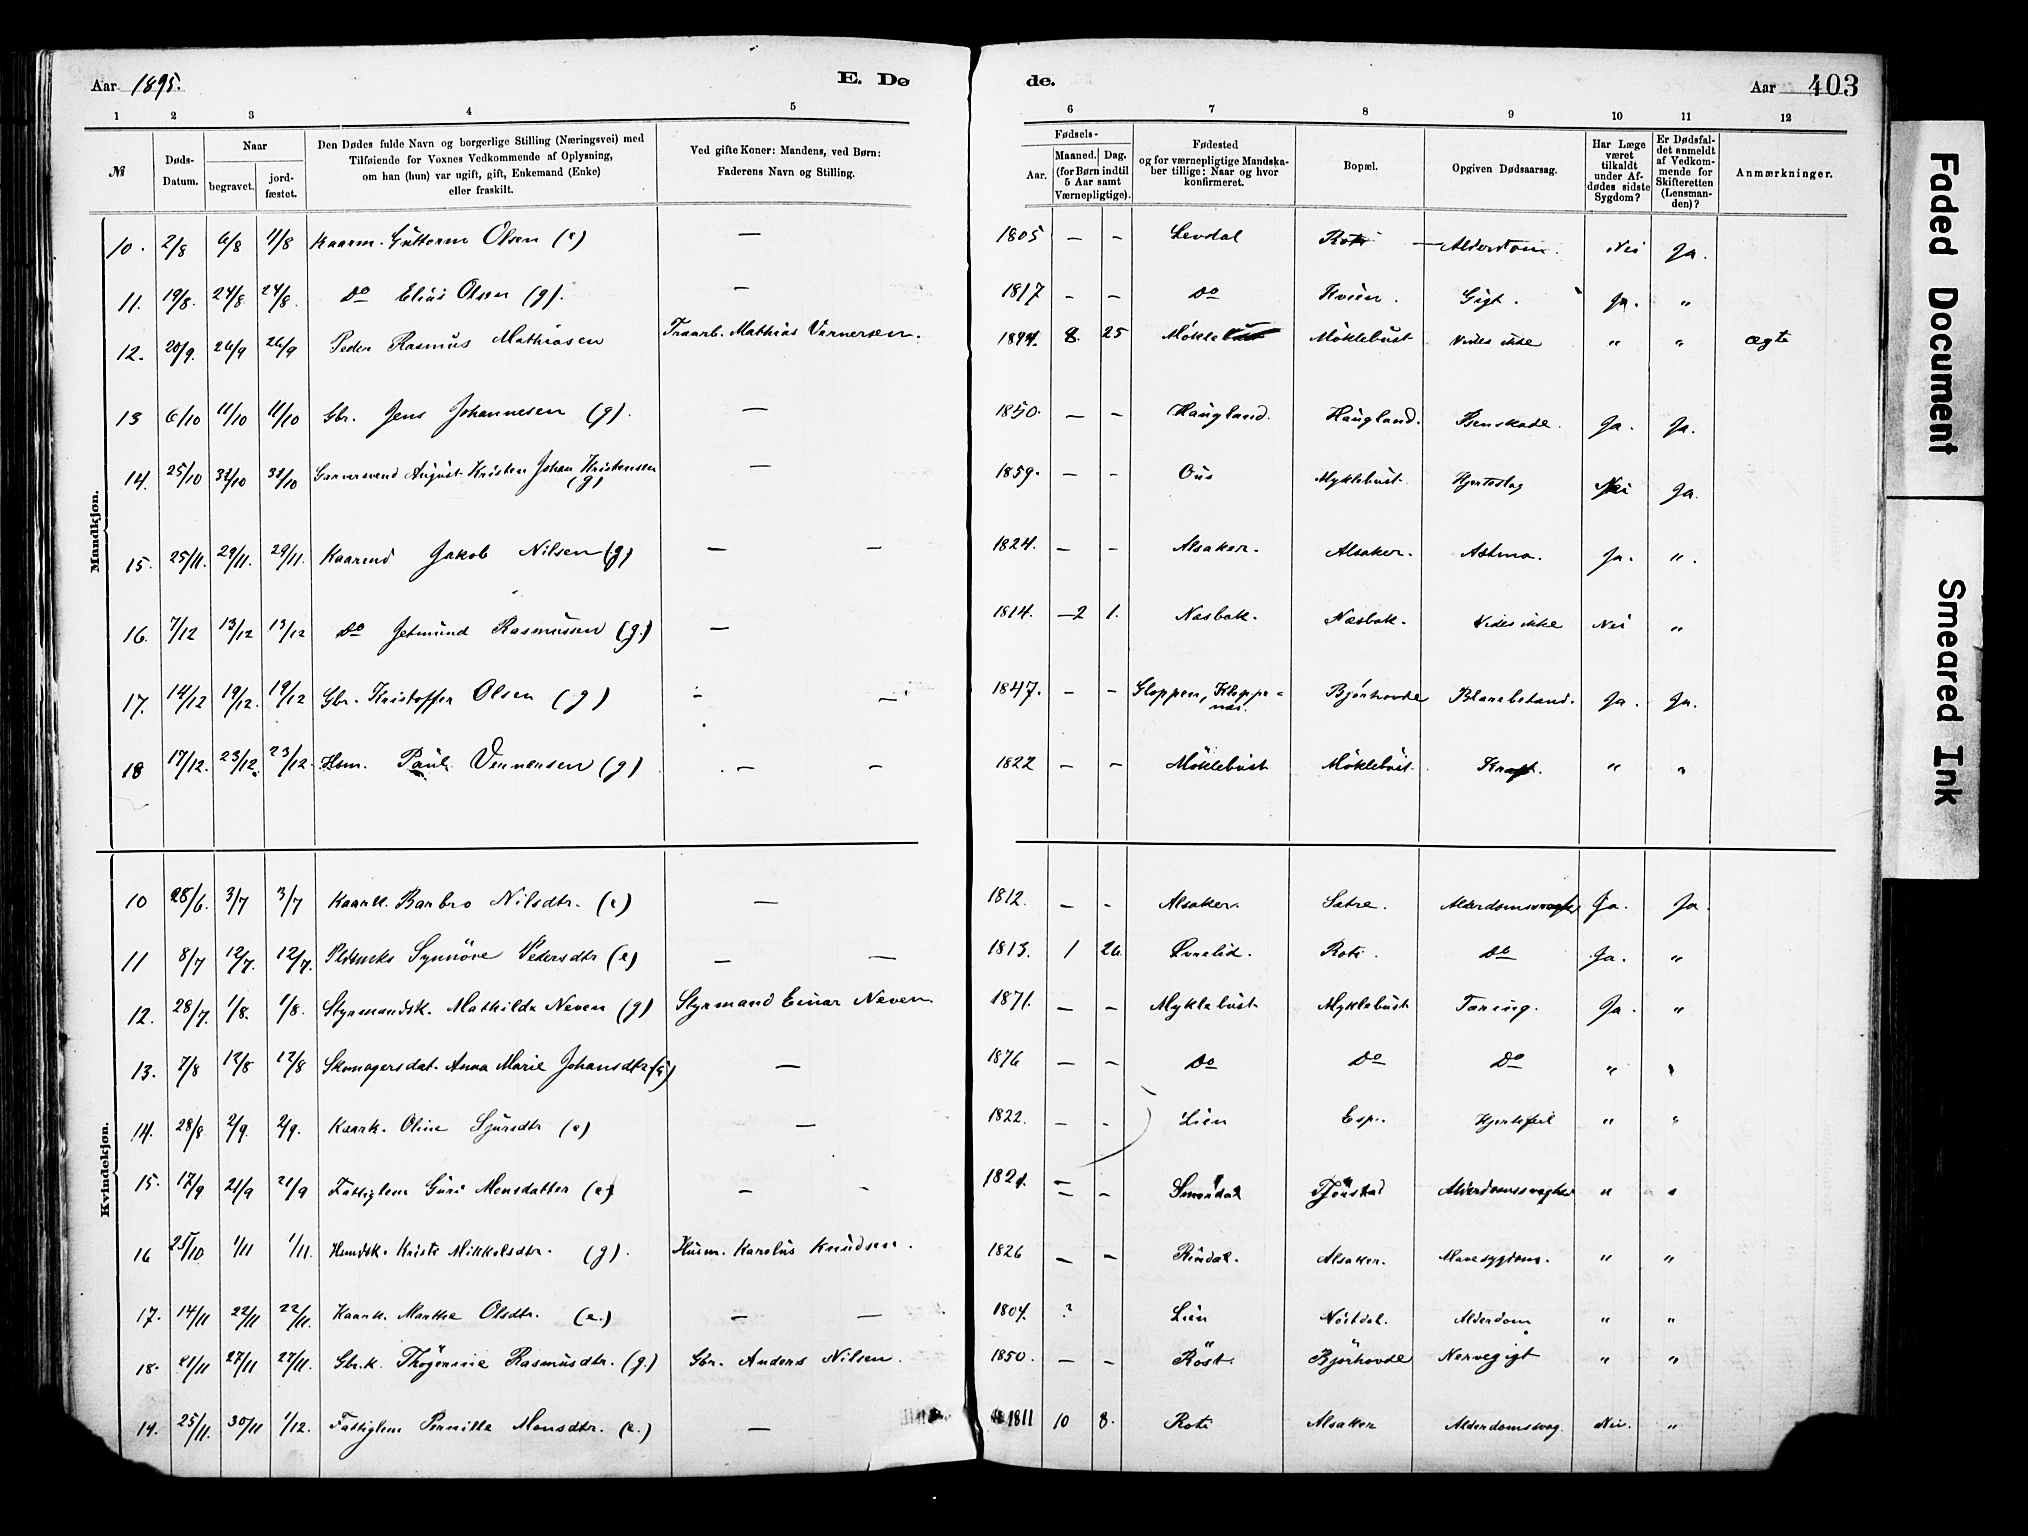 Aar 1895.
E. Dø
de.
Aar 403
1 2 3 4 5 6 7 8 9 10 11 12
№
Døds-Datum.
Naar
begravet.
jord-fæstet.
Den Dødes fulde Navn og borgerlige Stilling (Næringsvei) med
Tilføiende for Voxnes Vedkommende af Oplysning,
om han (hun) var ugift, gift, Enkemand (Enke)
eller fraskilt.
Ved gifte Koner: Mandens, ved Børn:
Faderens Navn og Stilling.
Fødsels-
Aar.
Maaned. Dag.
(for Børn indtil
5 Aar samt
Værnepligtige).
Fødested
og for værnepligtige Mandska-
ber tillige: Naar og hvor
konfirmeret.
Bopæl.
Opgiven Dødsaarsag.
Har Læge
været
tilkaldt
under Af-
dødes sidste
Sygdom?
Er Dødsfal-
det anmeldt
af Vedkom-
mende for
Skifteretten
(Lensman-
den)?
Anmærkninger.
Mandkjøn.
10. 2/8 6/8 11/8 Kaarm. Guttorm Olsen (e) — 1805 — — Levdal Roti — Alderdom. Nei Ja.
11. 19/8. 24/8 24/8. Do Elias Olsen (g). — 1817 — — Do Kvien. Gigt. Ja. "
12. 20/9. 26/9 26/9 Peder Rasmus Mathiasen Mathias 1894. 8. 25 Møklebust Møklebust Vides ikke " " ægte
13 6/10 11/10 11/10 Gbr. Jens Johannesen (g). — 1850. — — Haugland. Haugland. Ja. Ja.
14. 25/10 31/10 31/10 Garversvend August Kristen Johan Kristensen (g) — 1859. — — Ous Myklebust. Hjerteslag Nei Ja.
15. 25/11. 29/11. 29/11. Kaarmd Jakob Nilsen (g) — — 1824. — — Alsaker. Alsaker. Astma. Ja. ".
16. 7/12 13/12 13/12 Do Jetmund Rasmussen (g.) — 1814. — 2 1. Næsbak. Næsbak. Vides ikke Nei "
17. 14/12 19/12. 19/12 Gbr. Kristoffer Olsen (g) — — 1847. — — Gloppen, Bjørhovde Ja. Ja.
18 17/12. 23/12. 23/12. Hsm. Paul (g) — — 1822 — — Møklebust Møklebust. Kræft. " "
Kvindekjøn.
10 28/6. 3/7 3/7 Kaark. Barbro Nilsdtr. (e) — 1812. — — Alsaker. Sætre. Alderdomssvaghed Ja. Ja.
11 8/7 12/7. 12/7. Synnöve Pedersdtr (e) — — 1813. 1 26 Roti. Do Ja. "
12. 28/7. 1/8. 1/8. Styrmandsk. Mathilde Neven (g) Styrmand Einar Neven. 1871. — — Myklebust Myklebust Tæring. Ja. "
13. 7/8 12/8 12/8 Skomagersdat. Anna Marie Johansdtr — 1876 — — Do Do Do " "
14. 28/8 2/9. 2/9. Kaark. Oline Sjursdtr (e) — 1822. — — Lien Esp. Hjertefeil " "
15. 17/9 21/9 21/9 Fattiglem Guri Monsdatter (e) — — — — Alderdomssvaghed " "
16 25/10 1/11 1/11. Husmdsk. Kristi Mikkelsdtr. (g). Husm. Karolus Knudsen. 1826 — — Rindal. Alsaker. Mavesygdom. " "
17. 14/11 22/11 22/11. Kaark. Marthe Olsdtr. (e.) — — 1804. ? Lien Nöstdal. Alderdom " "
18. 21/11 27/11 27/11. Gbr.k. Rasmusdtr. (g.) Gbr. Anders Nilsen. 1850. — — Röst. Bjørhovde Nervegigt " "
19. 25/11. 30/11 1/12. Fattiglem Pernille Monsdtr. (e.) — 1811 10 8. Roti Alsaker Alderdomssvag. Nei. "
Faded Document
Smeared Ink